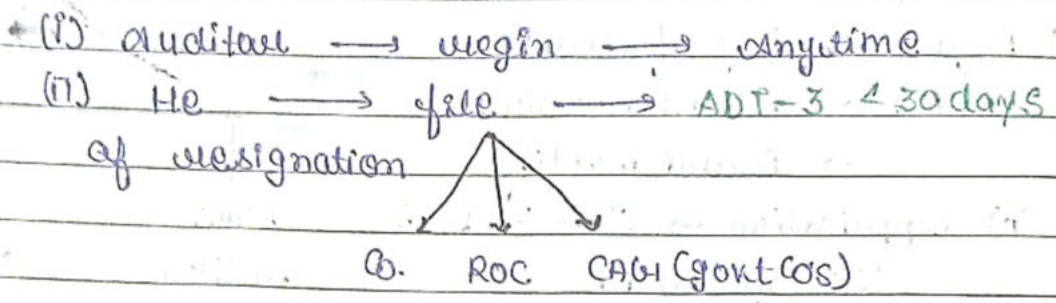 (i) Auditor → regin → Anytime
(ii) He → file → ADT-3 < 30 days
of resignation
Co. ROC CAG (govt Cos)